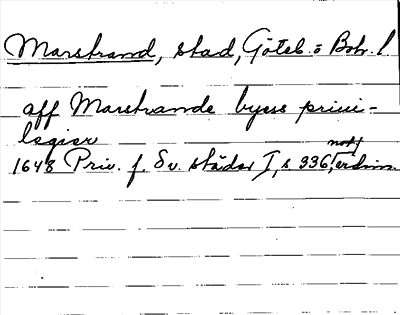 Marstrand, stad, Göteb. o Boh. l
aff Marstrande byess privi-
legier
1648 Priv. f. Sv. städer I, s 336,